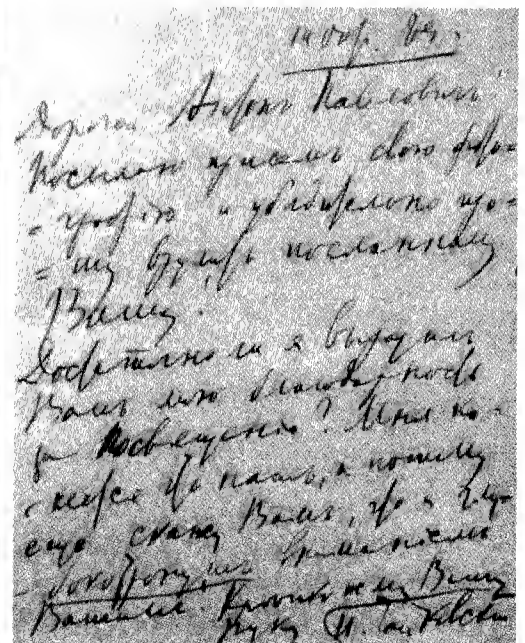 14 окт. 89 г.
Дорогой Антонъ Павловичъ!
Посылаю при семъ свою фото-
=графію и убѣдительно про-
=шу вручить посланному
Вашу.
Достаточно ли я выразилъ
Вамъ мою благодарность
за посвященіе? Мнѣ ка-
-жется что нѣтъ, а потому
еще скажу Вамъ, что я глу-
-боко тронутъ вниманіемъ
Вашимъ. Крѣпко жму Вашу
руку П. Чайковскій